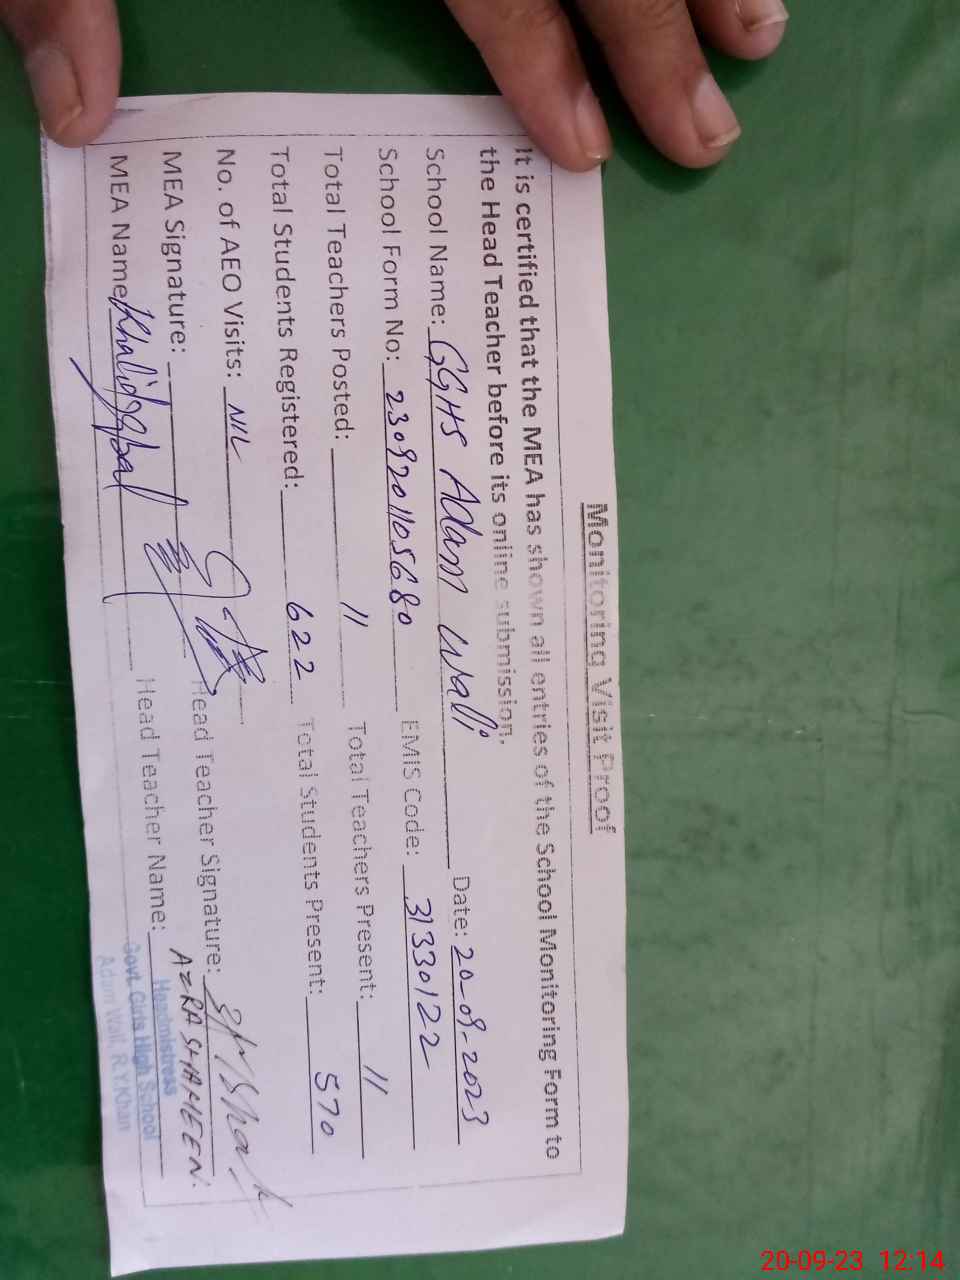 Monitoring Visit Proof
It is certified that the MEA has shown all entries of the School Monitoring Form to
the Head Teacher before its online submission.
School Name: GGHS Adam Wali Date: 20-09-2023
School Form No: 2309201105680 EMIS Code: 31330122
Total Teachers Posted: 11 Total Teachers Present: 11
Total Students Registered: 622 Total Students Present: 570
No. of AEO Visits: NIL
MEA Signature: Head Teacher Signature:
MEA Name Khalid Iqbal Head Teacher Name: AZRA SHAHEEN
Headmistress
Govt. Girls High School
Adam Wali, R.Y.Khan
20-09-23 12:14